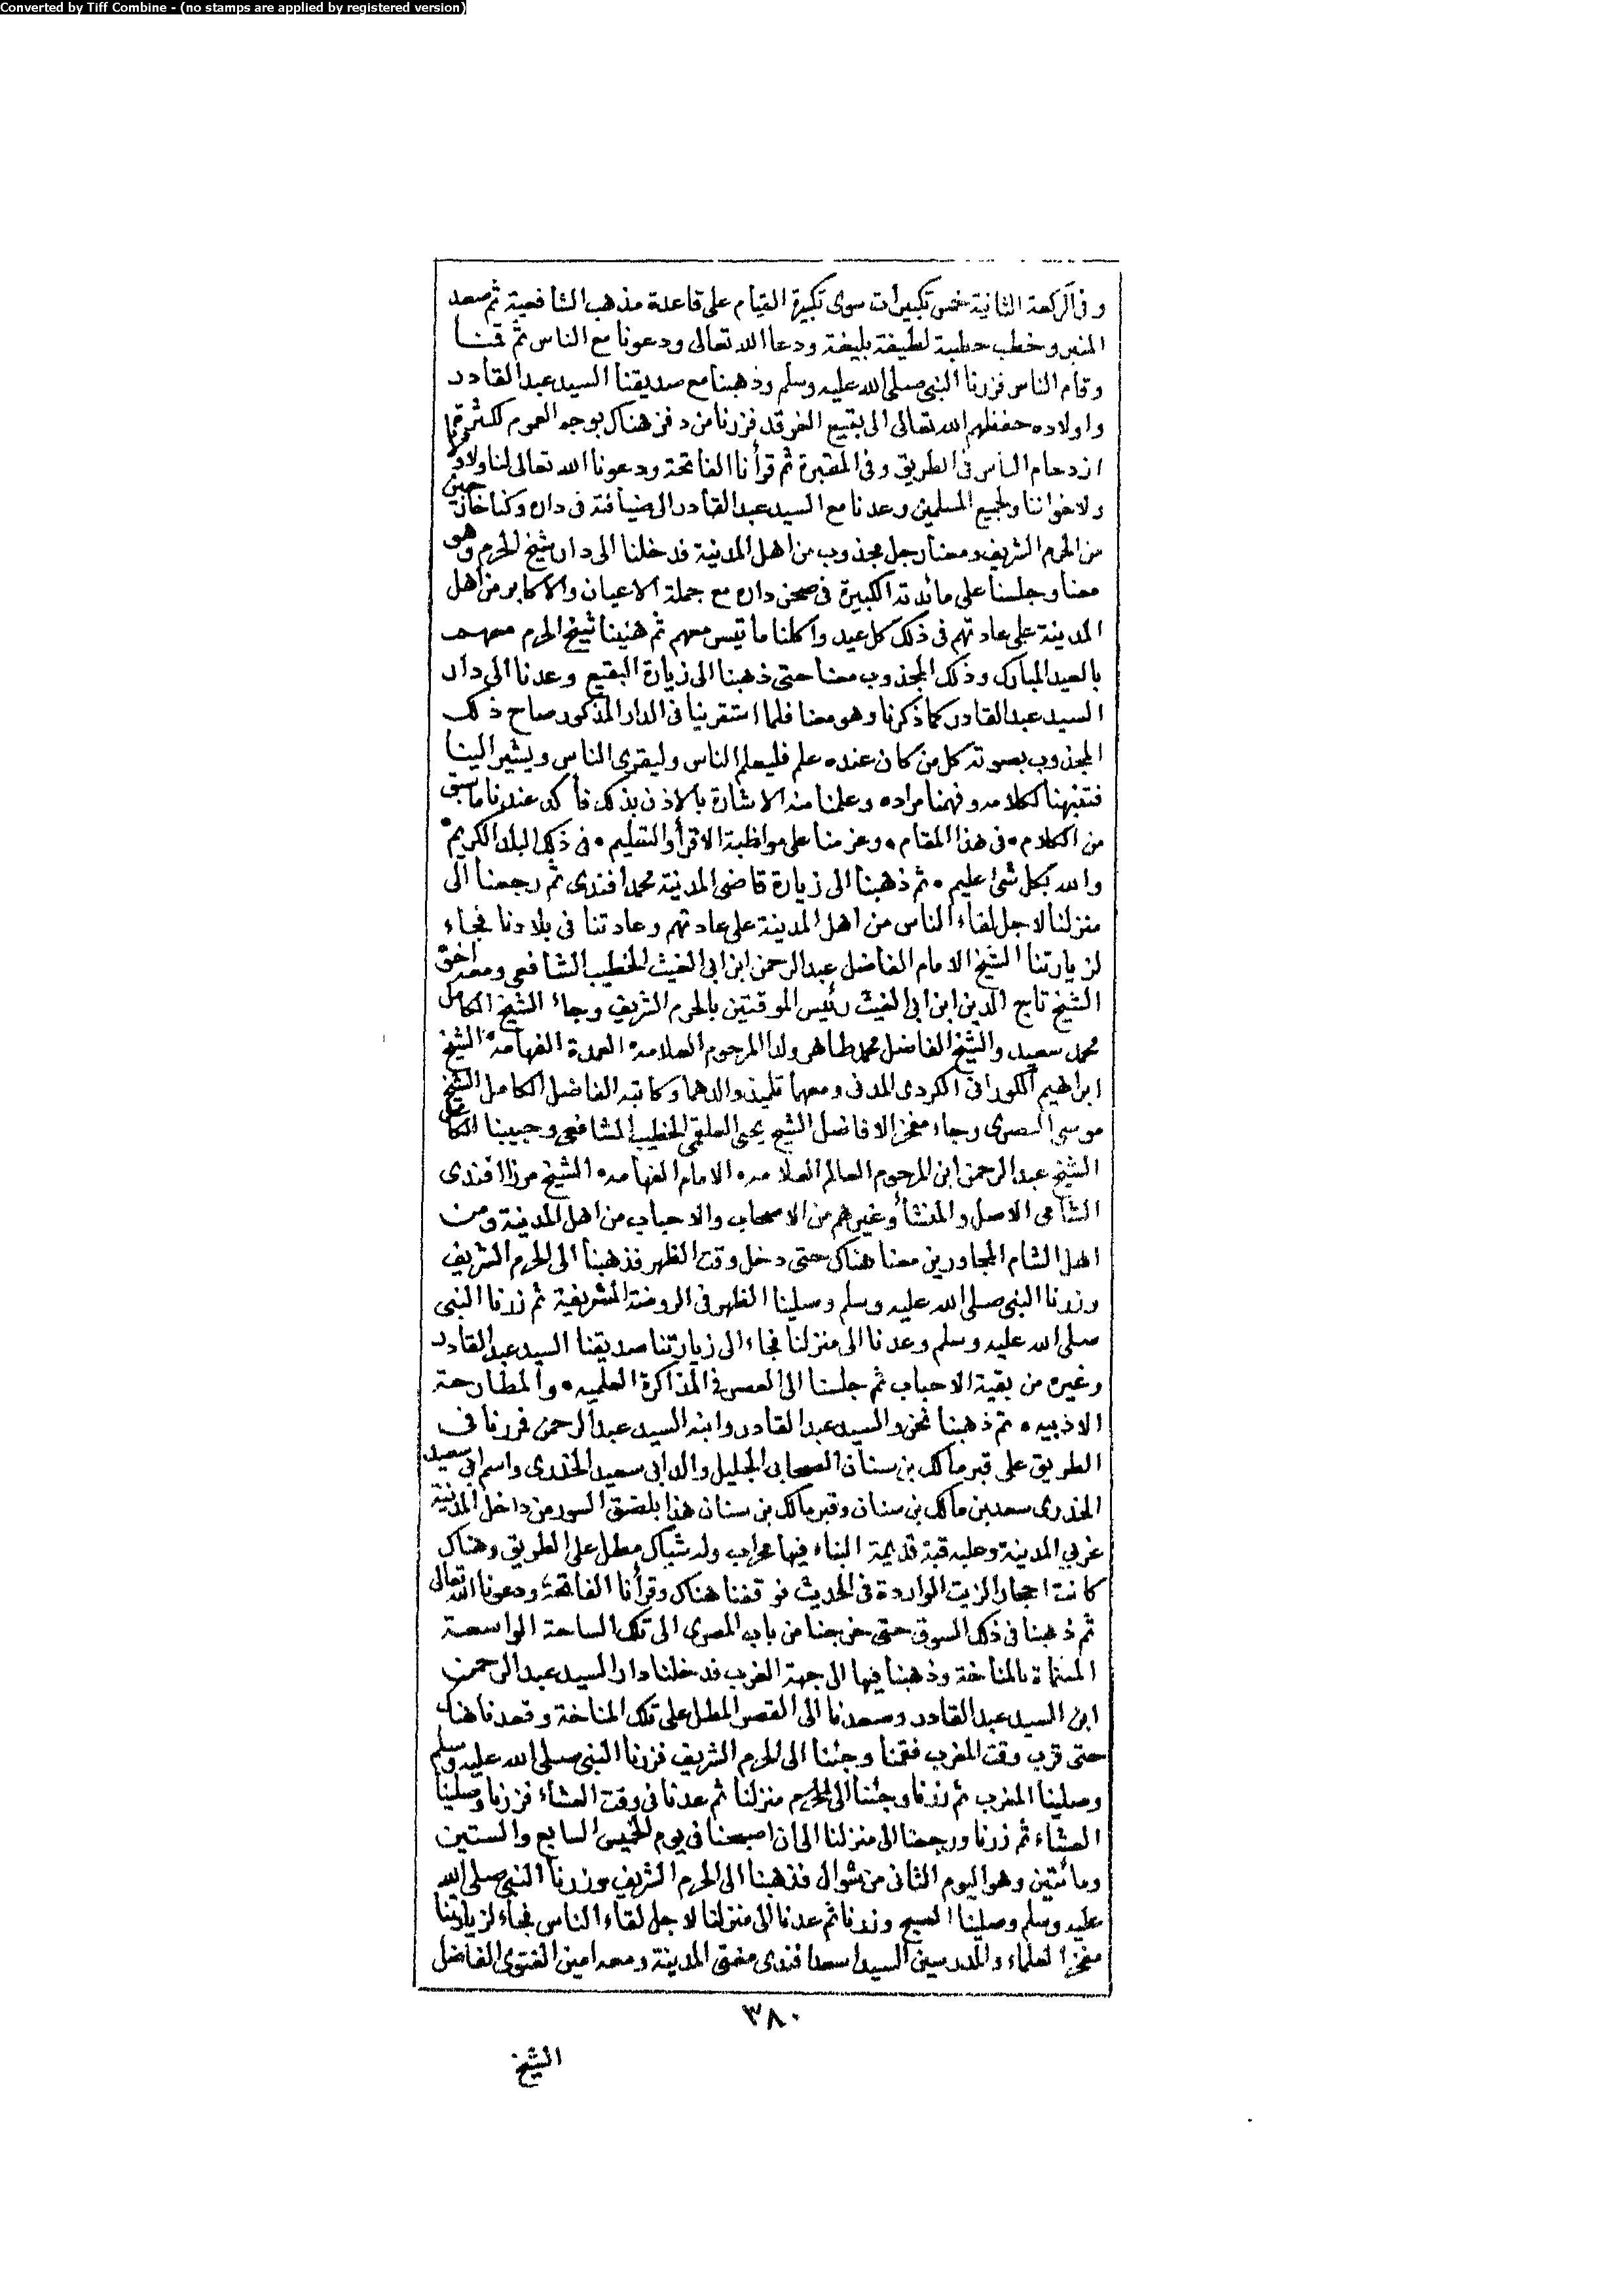 Converted by Tiff Combine - (no stamps are applied by registered version)
وفي الركعة الثانية خمس تكبيرات سوى تكبيرة القيام على قاعدة مذهب الشافعية ثم صعد
المنبر وخطب خطبة لطيفة بليغة ودعا الله تعالى ودعونا مع الناس ثم قمنا
وقام الناس فزرنا النبي صلى الله عليه وسلم وذهبنا مع صديقنا السيد عبد القادر
واولاده حفظهم الله تعالى الى بقيع الغرقد فزرنا من دفن هناك بوجه العموم لكثرة
ازدحام الناس في الطريق وفي المقبرة ثم قرأنا الفاتحة ودعونا الله تعالى لنا ولاولادنا
ولاخواننا ولجميع المسلمين وعدنا مع السيد عبد القادر الى ضيافته في داره وكنا حين خرجنا
من الحرم الشريف ومعنا رجل مجذوب من اهل المدينة فدخلنا الى دار شيخ الحرم وهو
معنا وجلسنا على مائدته الكبيرة في صحن داره مع جملة الاعيان والاكابر من اهل
المدينة على عادتهم في ذلك كل عيد واكلنا ما تيسر معهم ثم هنينا شيخ الحرم معهم
بالعيد المبارك وذلك المجذوب معنا حتى ذهبنا الى زيارة البقيع وعدنا الى دار
السيد عبد القادر كما ذكرنا وهو معنا فلما استقرينا في الدار المذكور صاح ذلك
المجذوب بصوته كل من كان عنده علم فليعلم الناس وليقرى الناس ويشير الينا
فتنبهنا لكلامه وفهمنا مراده وعلمنا منه الاشارة بالاذن بذلك فأكد عندنا ما سبق
من الكلام، في هذا المقام، وعزمنا على مواظبة الاقرأ والتعليم، في ذلك البلد الكريم،
والله بكل شئ عليم، ثم ذهبنا الى زيارة قاضي المدينة محمد افندى ثم رجعنا الى
منزلنا لاجل لقاء الناس من اهل المدينة على عادتهم وعادتنا في بلادنا فجاء
لزيارتنا الشيخ الامام الفاضل عبد الرحمن ابن ابى الغيث الخطيب الشافعي ومعه اخوه
الشيخ تاج الدين ابن ابى الغيث رئيس الموقتين بالحرم الشريف وجاء الشيخ الكامل
محمد سعيد والشيخ الفاضل محمد طاهر ولدا المرحوم العلامه العمدة الفهامه الشيخ
ابراهيم الكورانى الكردى المدنى ومعهما تلميذ والدهما وكاتبه الفاضل الكامل الشيخ
موسى البصرى وجاء مفخر الافاضل الشيخ يحيى العلقمى الخطيب الشافعي وحبيبنا الكامل
الشيخ عبد الرحمن ابن المرحوم العالم العلامه، الامام الفهامه، الشيخ مرزا افندى
الشامى الاصل والمنشأ وغيرهم من الاصحاب والاحباب من اهل المدينة ومن
اهل الشام المجاورين معنا هناك حتى دخل وقت الظهر فذهبنا الى الحرم الشريف
وزرنا النبي صلى الله عليه وسلم وصلينا الظهر في الروضة الشريفة ثم زرنا النبي
صلى الله عليه وسلم وعدنا الى منزلنا فجاء الى زيارتنا صديقنا السيد عبد القادر
وغيره من بقية الاحباب ثم جلسنا الى العصر في المذاكرة العلميه، والمطارحة
الادبيه، ثم ذهبنا نحن والسيد عبد القادر وابنه السيد عبد الرحمن فمررنا في
الطريق على قبر مالك بن سنان الصحابى الجليل والد ابى سعيد الخدرى واسم ابى سعيد
الخدرى سعد بن مالك بن سنان وقبر مالك بن سنان هذا بلصق السور من داخل المدينة
غربي المدينة وعليه قبة قديمة البناء فيها محراب وله شباك مطل على الطريق وهناك
كانت احجار الزيت الواردة في الحديث فوقفنا هناك وقرأنا الفاتحة ودعونا الله تعالى
ثم ذهبنا في ذلك السوق حتى خرجنا من باب المصرى الى تلك الساحة الواسعة
المسماة بالمناخة وذهبنا فيها الى جهة الغرب فدخلنا دار السيد عبد الرحمن
ابن السيد عبد القادر وصعدنا الى القصر المطل على تلك المناخة وقعدنا هناك
حتى قرب وقت المغرب فقمنا وجئنا الى الحرم الشريف فزرنا النبي صلى الله عليه وسلم
وصلينا المغرب ثم زرنا وجئنا الى الحرم منزلنا ثم عدنا في وقت العشاء فزرنا وصلينا
العشاء ثم زرنا ورجعنا الى منزلنا الى ان اصبحنا في يوم الخميس السابع والستين
ومائتين وهو اليوم الثانى من شوال فذهبنا الى الحرم الشريف وزرنا النبي صلى الله
عليه وسلم وصلينا الصبح وزرنا ثم عدنا الى منزلنا لاجل لقاء الناس فجاء لزيارتنا
مفخر العلماء والمدرسين السيد اسعد افندى مفتى المدينة ومعه امين الفتوى الفاضل
٣٨٠
الشيخ